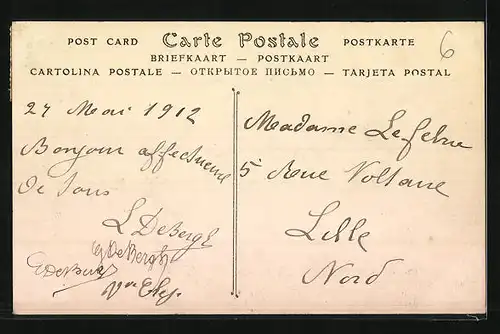 POST CARD Carte Postale POSTKARTE
BRIEFKAART — POSTKAART
CARTOLINA POSTALE — ОТКРЫТОЕ ПИСЬМО — TARJETA POSTAL
6
27 Mai 1912
Bonjour affectueux
de tous
L DeBergh
G DeBergh
Madame Lefebvre
5 Rue Voltaire
Lille
Nord